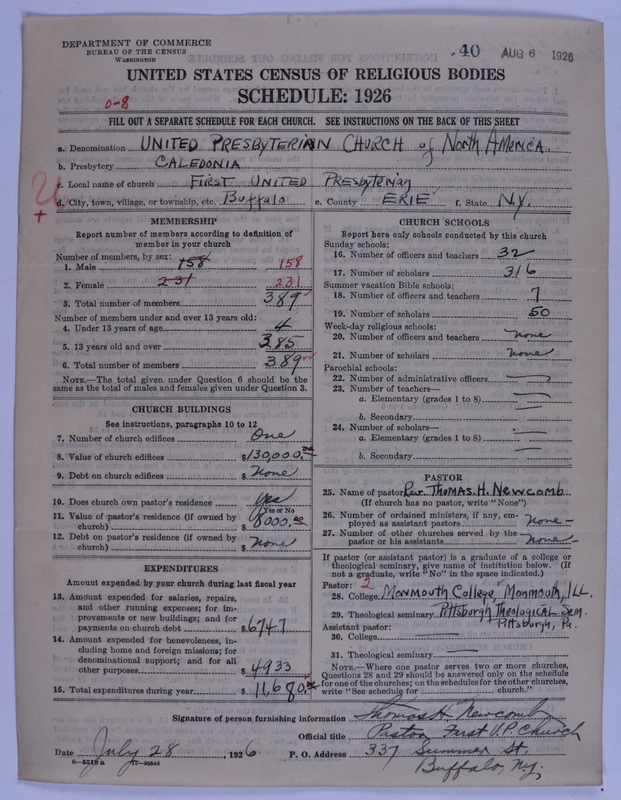 DEPARTMENT OF COMMERCE
BUREAU OF THE CENSUS
WASHINGTON
40 AUG 6 1926
UNITED STATES CENSUS OF RELIGIOUS BODIES
SCHEDULE: 1926
0-8
FILL OUT A SEPARATE SCHEDULE FOR EACH CHURCH. SEE INSTRUCTIONS ON THE BACK OF THIS SHEET
a. Denomination UNITED PRESBYTERIAN CHURCH of North America.
b. Presbytery CALEDONIA
c. Local name of church FIRST UNITED PRESBYTERIAN
d. City, town, village, or township, etc. Buffalo e. County ERIE f. State N.Y.
MEMBERSHIP
Report number of members according to definition of
member in your church
Number of members, by sex:
1. Male 158 158
2. Female 231 231
3. Total number of members 389
Number of members under and over 13 years old:
4. Under 13 years of age 4
5. 13 years old and over 385
6. Total number of members 389
NOTE.—The total given under Question 6 should be
same as the total of males and females given under Question 3.
CHURCH BUILDINGS
See instructions, paragraphs 10 to 12
7. Number of church edifices One
8. Value of church edifices $130,000.00
9. Debt on church edifices $ None
10. Does church own pastor's residence Yes
Yes or No
11. Value of pastor's residence (if owned by
church) $8000.00
12. Debt on pastor's residence (if owned by
church) $ None
EXPENDITURES
Amount expended by your church during last fiscal year
13. Amount expended for salaries, repairs,
and other running expenses; for im-
provements or new buildings; and for
payments on church debt $6747
14. Amount expended for benevolences, in-
cluding home and foreign missions; for
denominational support; and for all
other purposes $4933
15. Total expenditures during year $11,680.00
CHURCH SCHOOLS
Report here only schools conducted by this church
Sunday schools:
16. Number of officers and teachers 32
17. Number of scholars 316
Summer vacation Bible schools:
18. Number of officers and teachers 7
19. Number of scholars 50
Week-day religious schools:
20. Number of officers and teachers none
21. Number of scholars none
Parochial schools:
22. Number of administrative officers —
23. Number of teachers—
a. Elementary (grades 1 to 8) —
b. Secondary —
24. Number of scholars—
a. Elementary (grades 1 to 8) —
b. Secondary —
PASTOR
25. Name of pastor Rev. THOMAS. H. NEWCOMB
(If church has no pastor, write "None")
26. Number of ordained ministers, if any, em-
ployed as assistant pastors none-
27. Number of other churches served by the
pastor or his assistants none-
If pastor (or assistant pastor) is a graduate of a college or
theological seminary, give name of institution below. (If
not a graduate, write "No" in the space indicated.)
Pastor: 2
28. College Monmouth College, Monmouth, ILL.
29. Theological seminary Pittsburgh Theological Sem.
Assistant pastor: Pittsburgh, Pa.
30. College —
31. Theological seminary —
NOTE.—Where one pastor serves two or more churches,
Questions 28 and 29 should be answered only on the schedule
for one of the churches; on the schedules for the other churches,
write "See schedule for church."
Signature of person furnishing information Thomas H. Newcomb
Official title Pastor First U.P. Church
Date July 28, 1926 P. O. Address 337 Summer St.
8-5518a
Buffalo, N.Y.